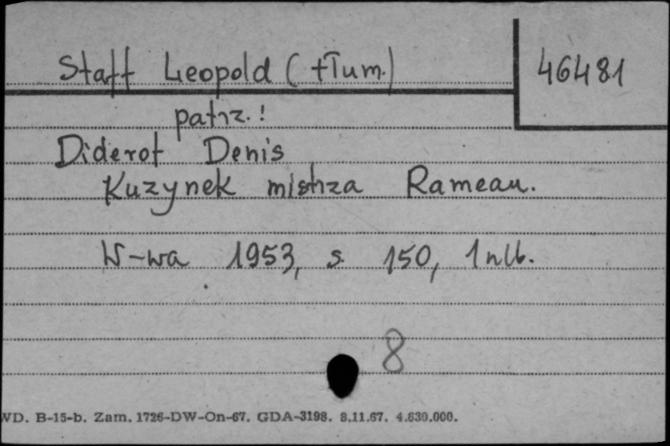 Staff Leopold (tłum.)
46481
patrz.!
Diderot Denis
Kuzynek mistrza Rameau.
W-wa 1953, s. 150, 1 nlb.
8
WD. B-15-b. Zam. 1726-DW-On-67. GDA-3198. 8.11.67. 4.630.000.